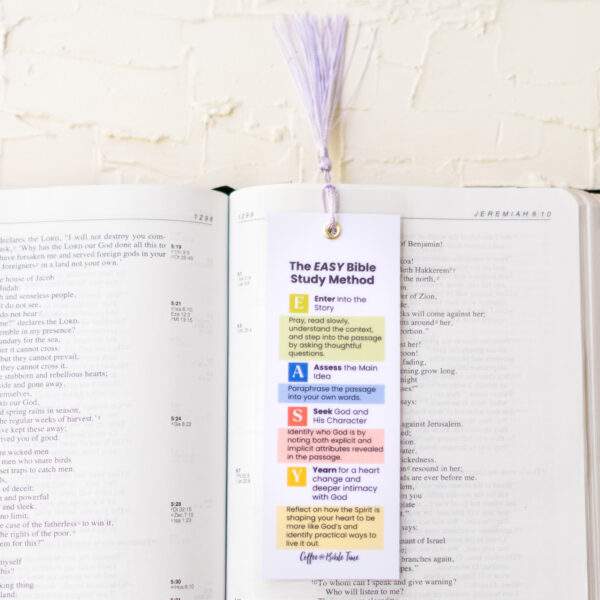 1298
declares the LORD, "I will not destroy you com-
ask, 'Why has the LORD our God done all this to
have forsaken me and served foreign gods in your
foreigners in a land not your own.'
he house of Jacob
Judah:
h and senseless people,
t do not see,
do not hear:
me?" declares the LORD.
emble in my presence?
undary for the sea;
er it cannot cross.
but they cannot prevail;
they cannot cross it.
e stubborn and rebellious hearts;
side and gone away.
themselves,
RD our God,
d spring rains in season,
he regular weeks of harvest.'
ve kept these away;
rived you of good.
re wicked men
men who snare birds
set traps to catch men.
of deceit;
h and powerful
and sleek.
no limit;
he case of the fatherless to win it,
he rights of the poor.
em for this?"
myself
this?
king thing
land:
5:19
5:21
5:24
5:28
5:30
1298
JEREMIAH 6:10
The EASY Bible
Study Method
E
Enter into the
Story
Pray, read slowly,
understand the context,
and step into the passage
by asking thoughtful
questions.
A
Assess the Main
Idea
Paraphrase the passage
into your own words.
S
Seek God and
His Character
Identify who God is by
noting both explicit and
implicit attributes revealed
in the passage.
Y
Yearn for a heart
change and
deeper intimacy
with God
Reflect on how the Spirit is
shaping your heart to be
more like God's and
identify practical ways to
live it out.
Coffee & Bible Time
of Benjamin!
koa!
Beth Hakkerem!
the north,
n.
er of Zion,
te.
ks will come against her;
ents around her,
portion."
st her!
oon!
fading,
ening grow long.
night
sses!"
says:
against Jerusalem.
d;
on.
r,
ckedness.
n resound in her;
ds are ever before me.
em,
m you
late
t."
says:
nant of Israel
branches again,
s."
To whom can I speak and give warning?
Who will listen to me?